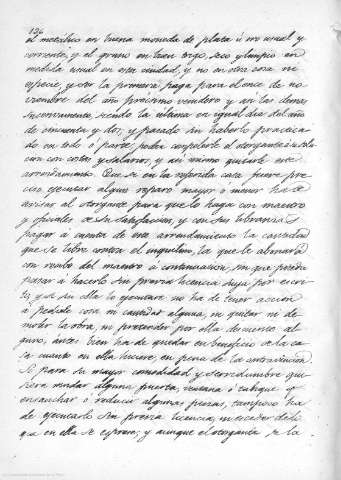 el metalico en buena moneda de plata ú oro usual y
corriente, y el grano en buen trigo, seco y limpio en
medida usual en esta ciudad, y no en otra cosa ni
especie; y por la primera paga para el once de no
viembre del año proximo venidero y en las demas
sucesivamente, siendo la ultima en igual dia del año
de cincuenta y dos; y pasado sin haberlo practica
do en todo ó parte, podra compelerle el otorgante á su solu
cion con costas y salarios, y asi mismo quitarle este
arrendamiento. Que si en la referida casa fuere pre
ciso ejecutar algun reparo mayor ó menor ha de
avisar al otorgante para que lo haga con maestro
y oficiales de su satisfaccion, y con sus libranzas
pagar á cuenta de este arrendamiento la cantidad
que se libre contra el inquilino, la que le abonará
con recibo del maestro á continuacion, sin que pueda
pasar á hacerlo sin previa licencia suya por escri
to; y si sin ella lo ejecutare no ha de tener accion
á pedirle cosa ni cantidad alguna, ni quitar ni de
moler la obra, ni pretender por ella descuento al
guno, antes bien ha de quedar en beneficio de la ca
sa cuanto en ella hiciere, en pena de la contravencion.
Si para su mayor comodidad y servidumbre qui
siera mudar alguna puerta, ventana ó tabique
ensanchar ó reducir algunas piezas, tampoco ha
de ejecutarlo sin previa licencia,
que en ella se esprese; y aunque el otorgante se la